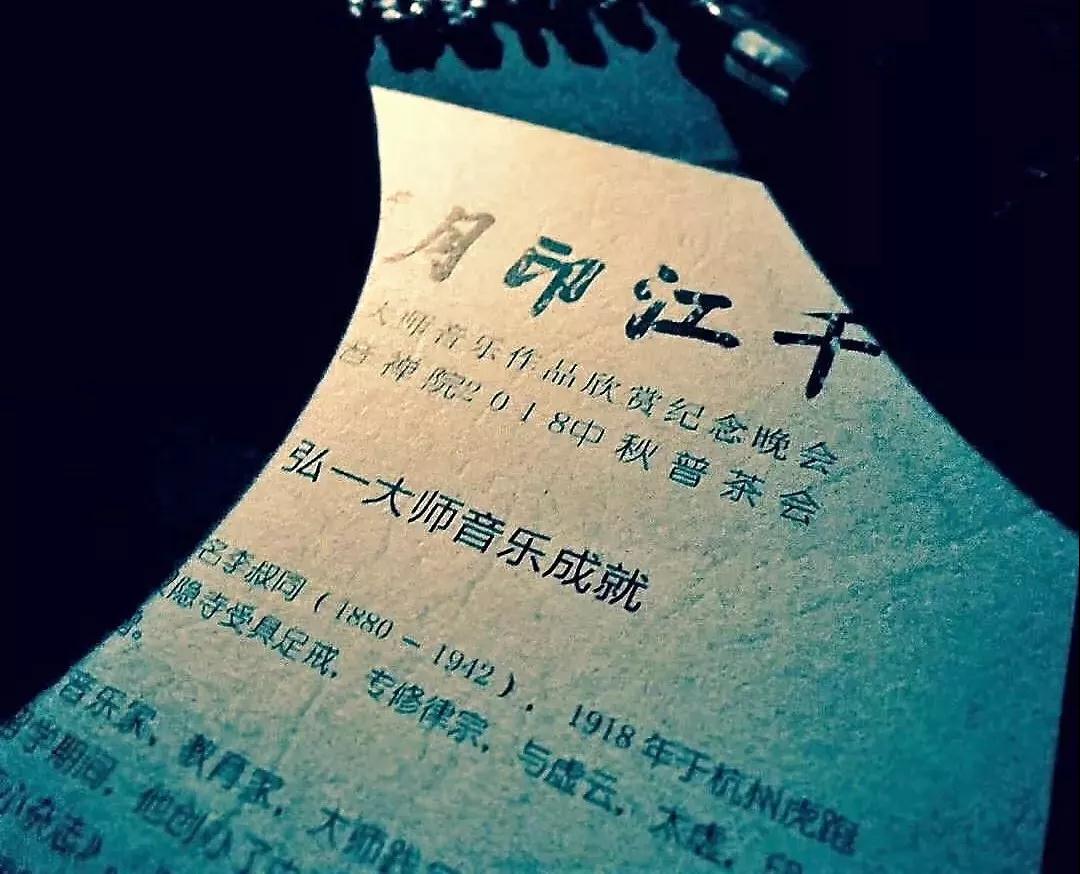 月印江千
大师音乐作品欣赏纪念晚会
普禅院2018中秋普茶会
弘一大师音乐成就
名李叔同（1880－1942），1918年于杭州虎跑
隐寺受具足戒，专修律宗，与虚云，太虚，印
音乐家，教育家，大师
留学期间，他创办了
小杂志》，